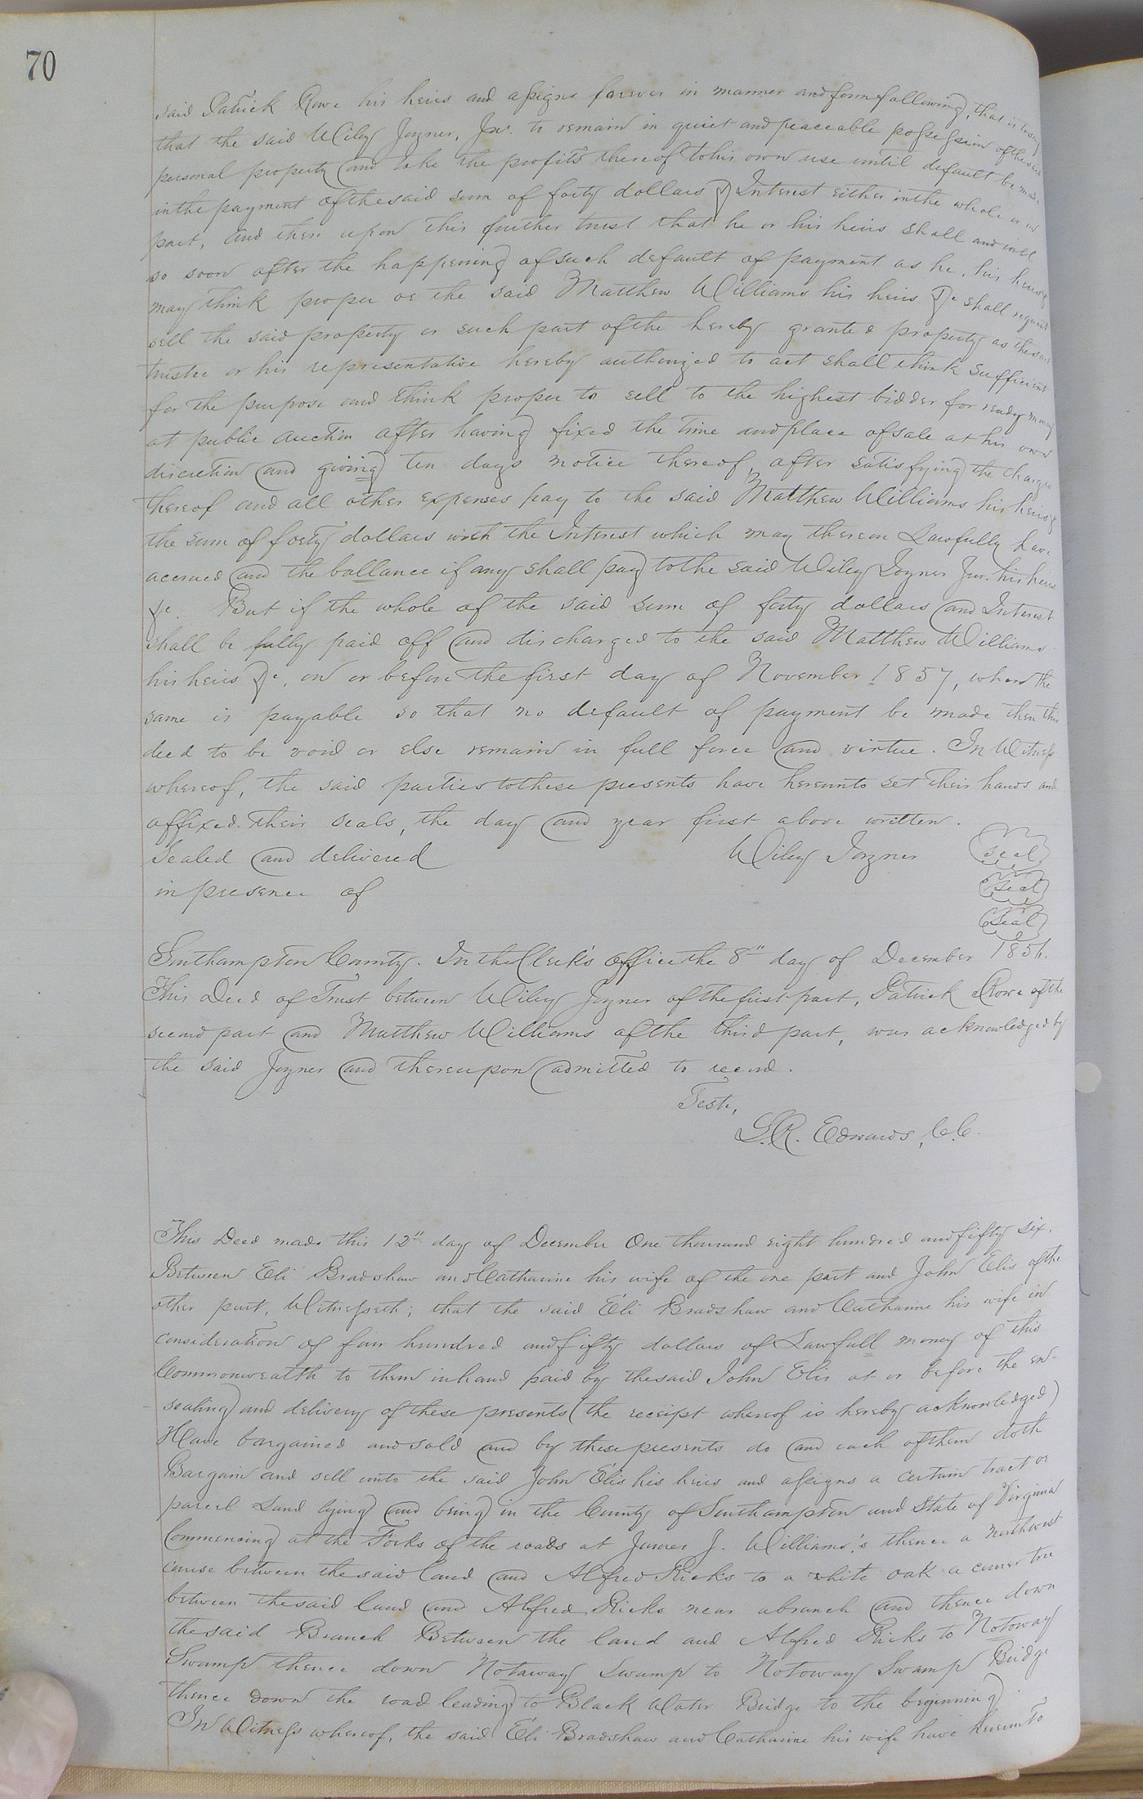 70
said Patrick Rowe his heirs and assigns forever in manner and form following, that is to say
that the said Wiley Joyner, Jnr. to remain in quiet and peaceable possession of the said
personal property and take the profits thereof to his own use until default be made
in the payment of the said sum of forty dollars & Interest either in the whole or in
part, and then upon this further trust that he or his heirs shall and will
so soon after the happening of such default of payment as he, his heirs &c
may think proper or the said Matthew Williams his heirs &c shall request
sell the said property or such part of the hereby granted property as the said
trustee or his representative hereby authorized to act shall think sufficient
for the purpose and think proper to sell to the highest bidder for ready money
at public auction after having fixed the time and place of sale at his own
discretion and giving ten days notice thereof, after satisfying the charges
thereof and all other expenses pay to the said Matthew Williams his heirs &c
the sum of forty dollars with the Interest which may thereon Lawfully have
accrued and the ballance if any shall pay to the said Wiley Joyner Jnr. his heirs
&c. But if the whole of the said sum of forty dollars and Interest
shall be fully paid off and discharged to the said Matthew Williams
his heirs &c, on or before the first day of November 1857, when the
same is payable so that no default of payment be made then this
deed to be void or else remain in full force and virtue. In Witness
whereof, the said parties to these presents have hereunto set their hands and
affixed their seals, the day and year first above written.
Sealed and delivered Wiley Joyner Seal
in presence of Seal
Seal
Southampton County. In the Clerk's office the 8" day of December 1856.
This Deed of Trust between Wiley Joyner of the first part, Patrick Rowe of the
second part and Matthew Williams of the third part, was acknowledged by
the said Joyner and thereupon admitted to record.
Teste,
L. R. Edwards, C.C.
This Deed made this 12" day of December One thousand eight hundred and fifty six.
Between Eli Bradshaw and Catharine his wife of the one part and John Elis of the
other part, Witnesseth; that the said Eli Bradshaw and Catharine his wife in
consideration of four hundred and fifty dollars of Lawfull money of this
Commonwealth to them in hand paid by the said John Elis at or before the en-
sealing and delivery of these presents (the receipt whereof is hereby acknowledged)
Have bargained and sold and by these presents do and each of them doth
Bargain and sell unto the said John Elis his heirs and assigns a certain tract or
parcel Land lying and being in the County of Southampton and State of Virginia
Commencing at the Forks of the roads at James J. Williams's thence a northwest
course between the said land and Alfred Ricks to a white oak a corner tree
between the said land and Alfred Ricks near a branch and thence down
the said Branch Between the land and Alfred Ricks to Notoway
Swamp thence down Notoway Swamp to Notoway Swamp Bridge
thence down the road leading to Black Water Bridge to the beginning
In Witness whereof, the said Eli Bradshaw and Catharine his wife have hereunto